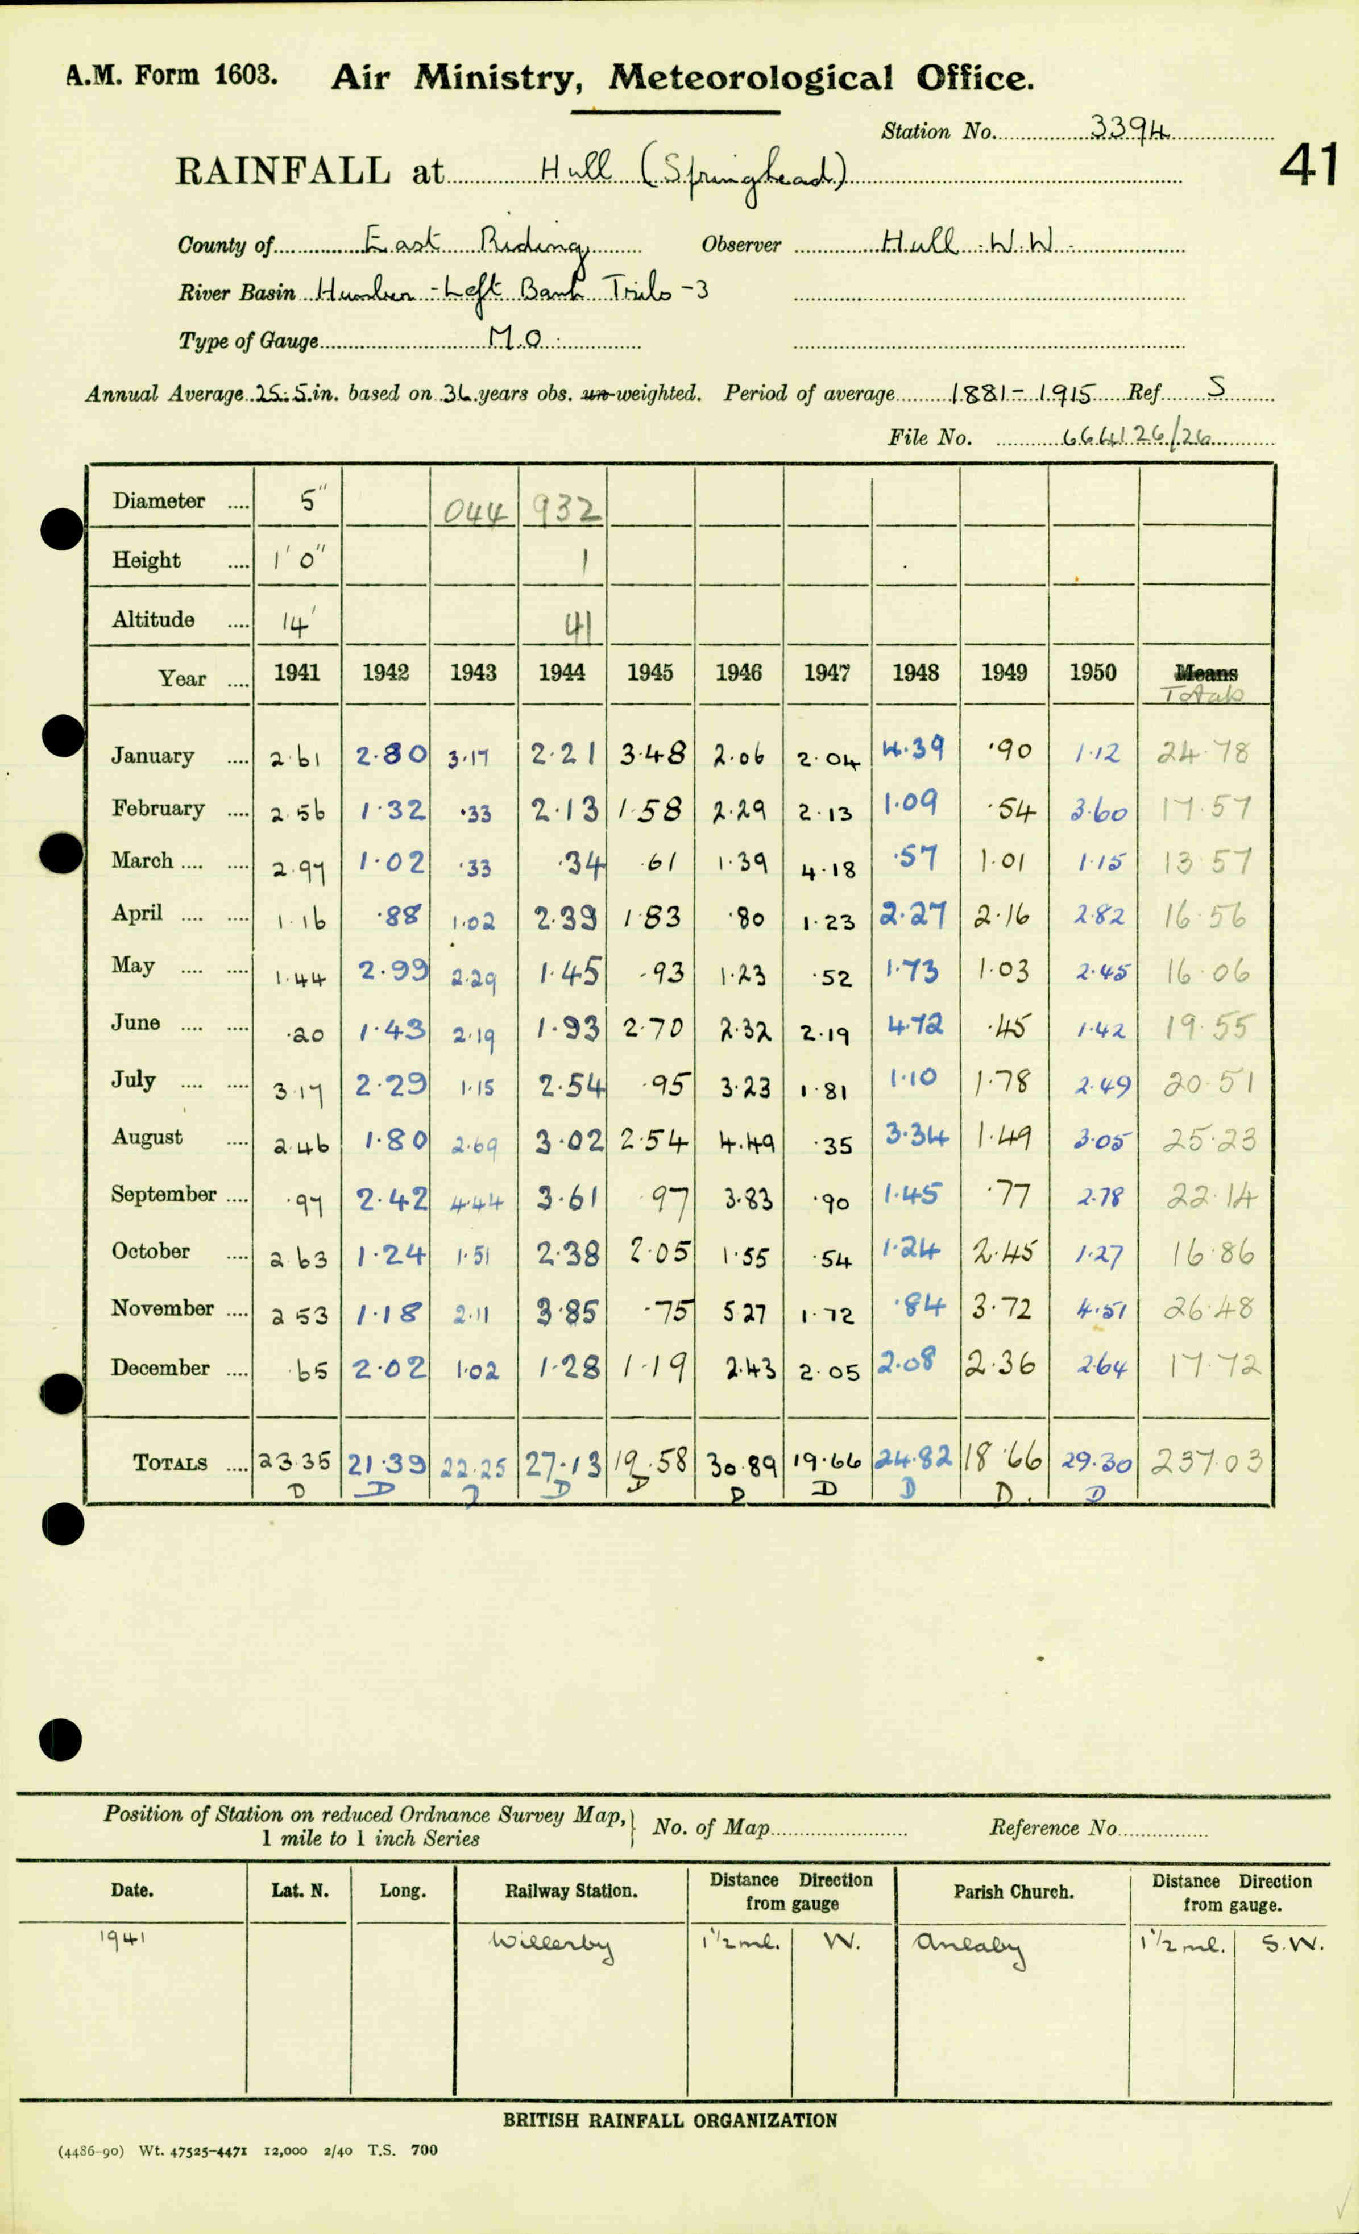 A.M. Form 1603. Air Ministry, Meteorological Office.
Station No. 3394
41
RAINFALL at Hull (Springhead)
County of East Riding Observer Hull W.W.
River Basin Humber - Left Bank Tribs - 3
Type of Gauge M.O.
Annual Average 25.5 in. based on years obs. un-weighted. Period of average 1881 - 1915 Ref. S
File No. 664126/26
Diameter .... 5" 044 932
Height .... 1' 0" 1
Altitude .... 14' 41
Year .... 1941 1942 1943 1944 1945 1946 1947 1948 1949 1950 Means
Totals
January .... 2.61 2.80 3.17 2.21 3.48 2.06 2.04 4.39 .90 1.12 24.78
February .... 2.56 1.32 .33 2.13 1.58 2.29 2.13 1.09 .54 3.60 17.57
March .... .... 2.97 1.02 .33 .34 .61 1.39 4.18 .57 1.01 1.15 13.57
April .... .... 1.16 .88 1.02 2.39 1.83 .80 1.23 2.27 2.16 2.82 16.56
May .... .... 1.44 2.99 2.29 1.45 .93 1.23 .52 1.73 1.03 2.45 16.06
June .... .... .20 1.43 2.19 1.93 2.70 2.32 2.19 4.72 .45 1.42 19.55
July .... .... 3.17 2.29 1.15 2.54 .95 3.23 1.81 1.10 1.78 2.49 20.51
August .... 2.46 1.80 2.69 3.02 2.54 4.49 .35 3.34 1.49 3.05 25.23
September .... .97 2.42 4.44 3.61 .97 3.83 .90 1.45 .77 2.78 22.14
October .... 2.63 1.24 1.51 2.38 2.05 1.55 .54 1.24 2.45 1.27 16.86
November .... 2.53 1.18 2.11 3.85 .75 5.27 1.72 .84 3.72 4.51 26.48
December .... .65 2.02 1.02 1.28 1.19 2.43 2.05 2.08 2.36 2.64 17.72
TOTALS .... 23.35 21.39 22.25 27.13 19.58 30.89 19.66 24.82 18.66 29.30 237.03
D D D D D D D D D
Position of Station on reduced Ordnance Survey Map, 1 mile to 1 inch Series } No. of Map Reference No.
Date. Lat. N. Long. Railway Station. Distance from gauge Direction Parish Church. Distance from gauge. Direction
1941 Willerby 1 1/2 ml. W. Anlaby 1 1/2 ml. S.W.
BRITISH RAINFALL ORGANIZATION
(4486-90) Wt. 47525-4471 12,000 2/40 T.S. 700